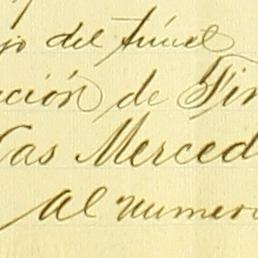 jo del túnel
ación de Tin
Las Merced
Al numero